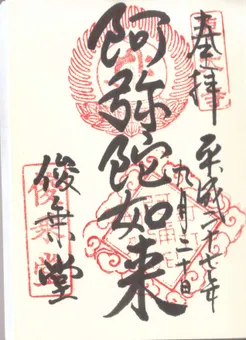 奉拝
平成二十七年
九月二十日
阿弥陀如来
俊乗堂